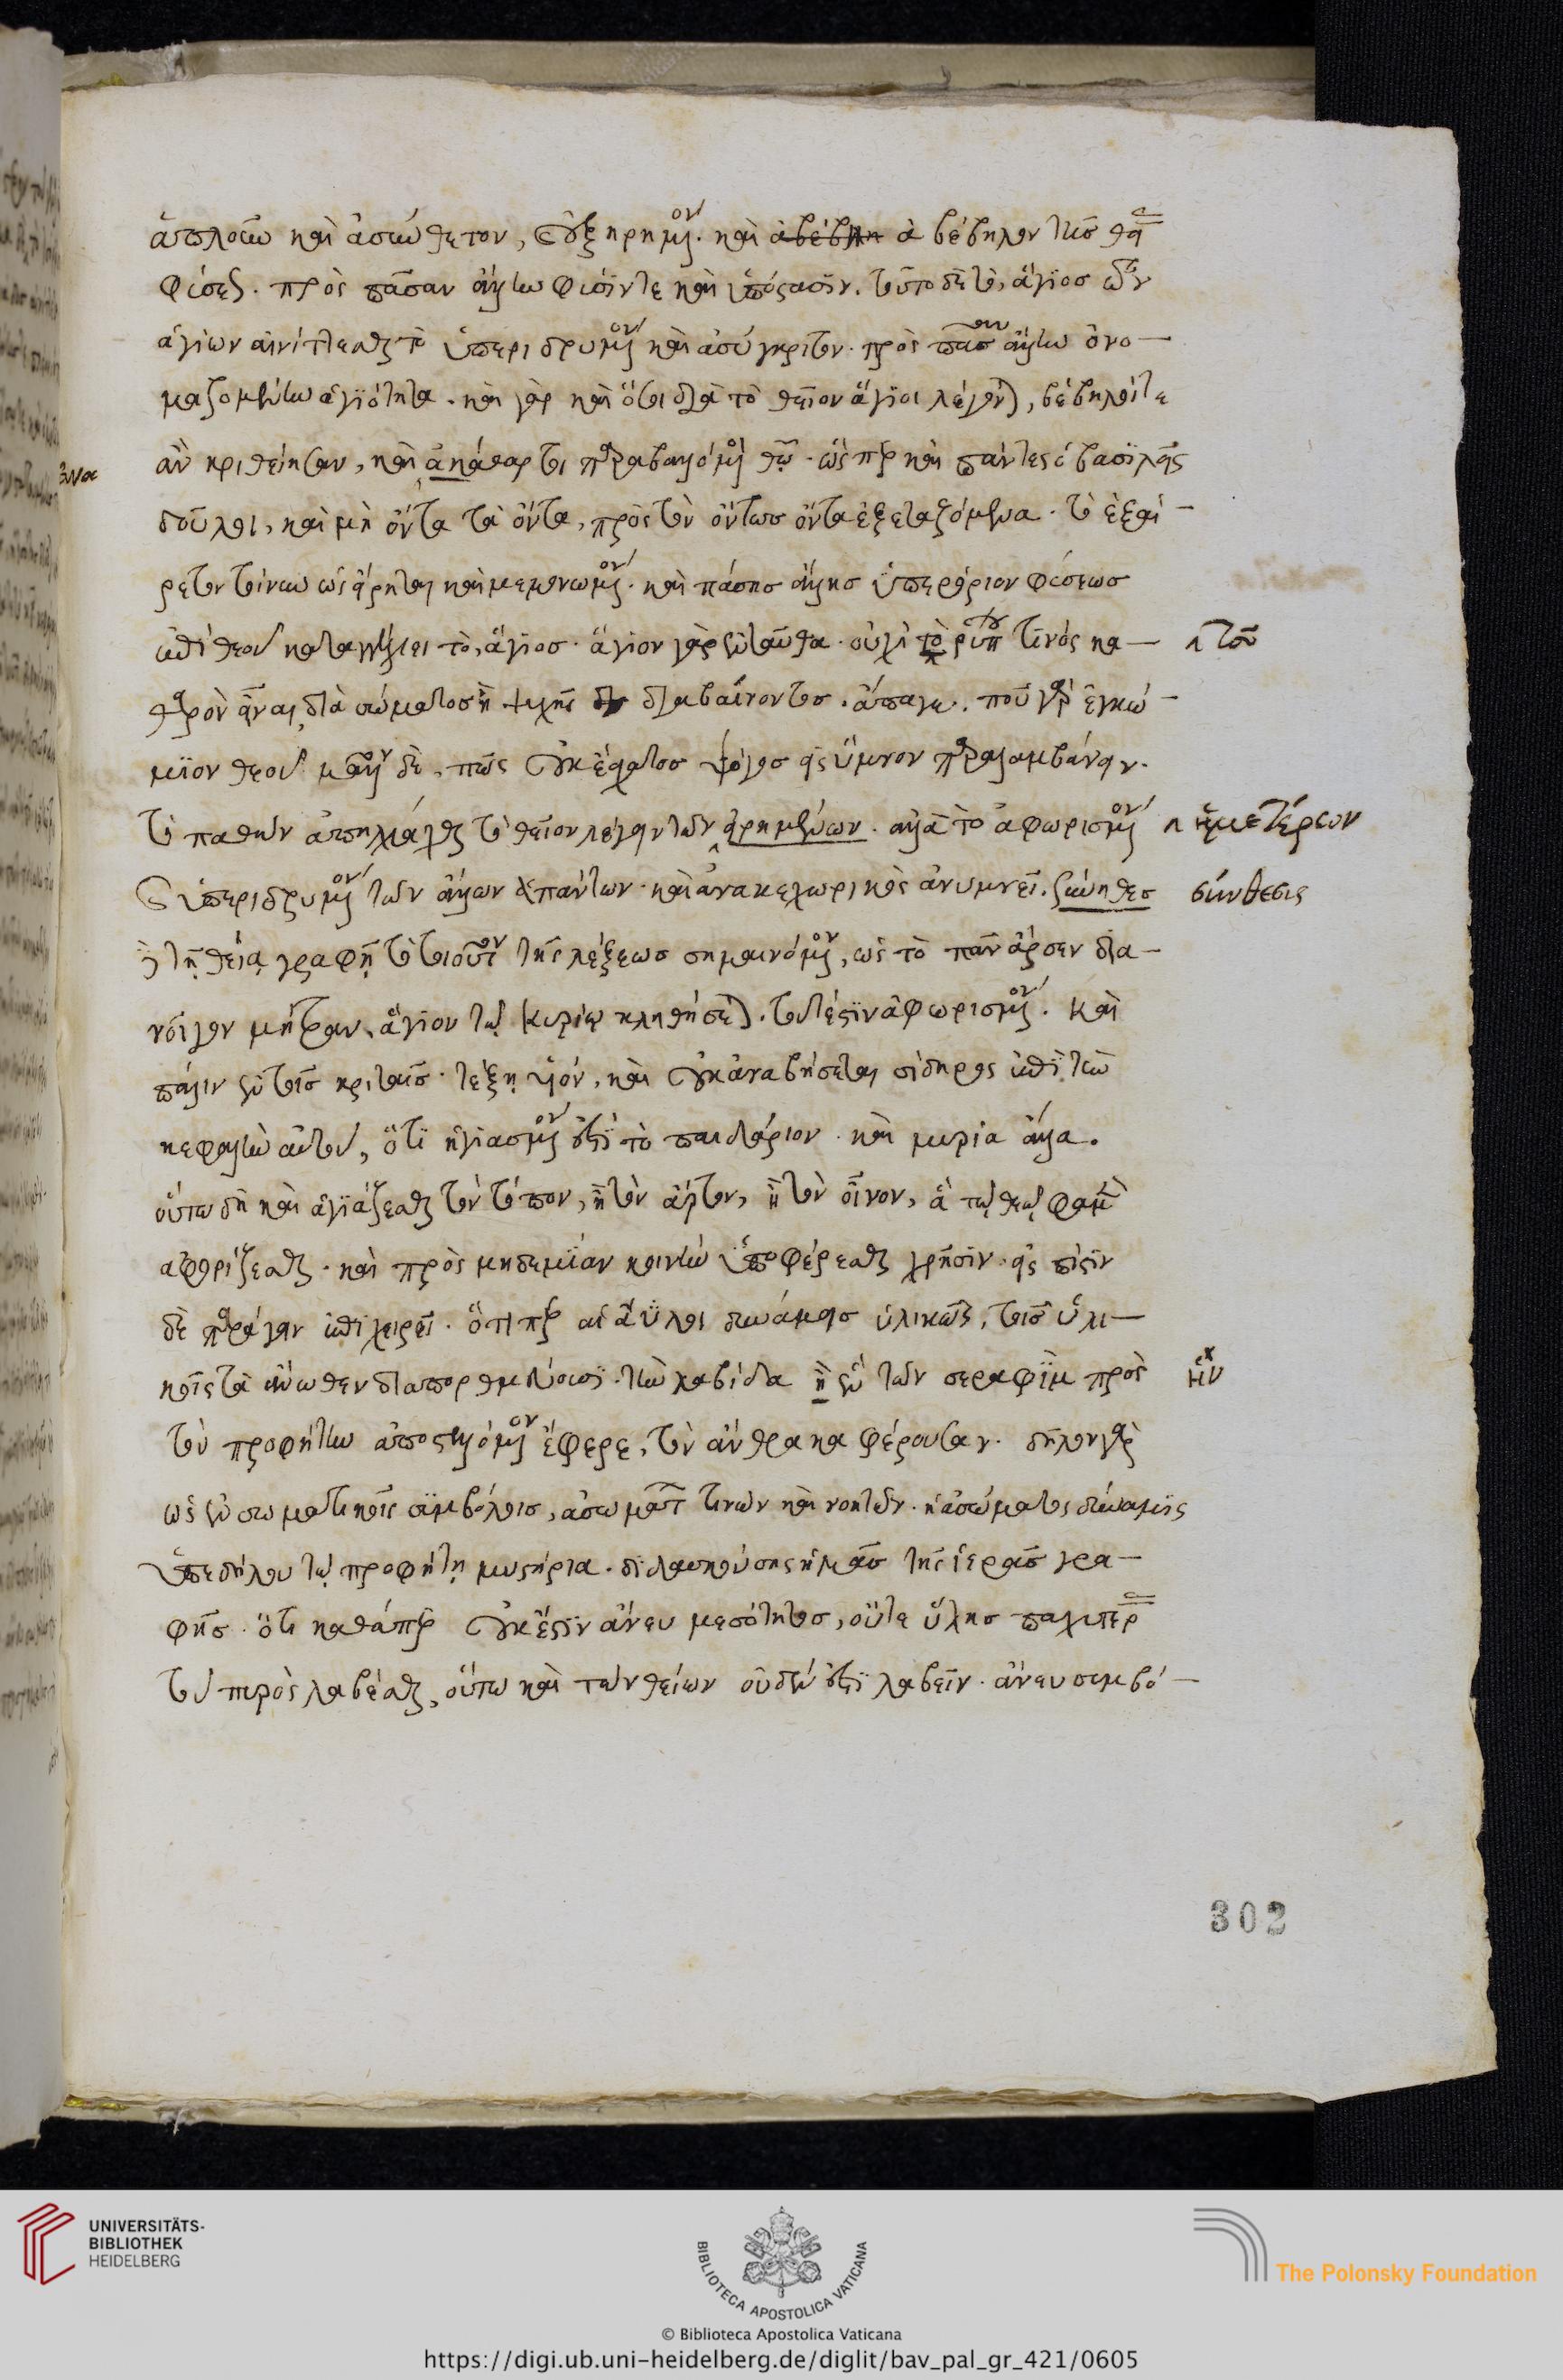 ἁπλοῦν καὶ ἀσύνθετον, ἐξῃρημένον. καὶ ἀβέβηλον τῆς θείας
φύσεως. πρὸς πᾶσαν ἄλλην φύσιν τε καὶ ὑπόστασιν. τοῦτο δὲ τὸ, ἅγιος τῶν
ἁγίων αἰνίττεσθαι τὸ ὑπεριδρυμένον καὶ ἀσύγκριτον. πρὸς πᾶσαν ἄλλην ὀνο-
μαζομένην ἁγιότητα. καὶ γὰρ καὶ ὅσοι διὰ τὸ θεῖον ἅγιοι λέγονται, βέβηλοί τε
ἂν κριθείησαν, καὶ ἀκάθαρτοι παραβαλλόμενοι θεῷ. ὥσπερ καὶ πάντες οἱ βασιλεῖς
δοῦλοι, καὶ μὴ ὄντα τὰ ὄντα, πρὸς τὸν ὄντως ὄντα ἐξεταζόμενα. τὸ ἐξαί-
ρετον τοίνυν ὡς εἴρηται καὶ μεμονωμένον. καὶ πάσης ἄλλης ὑπερόριον φύσεως
ἐπὶ θεοῦ καταγγέλλει τὸ, ἅγιος. ἅγιον γὰρ ἐνταῦθα. οὐχὶ τὸ ῥύπου τινός κα- τοῦ
θαρὸν εἶναι, διὰ σώματος ἢ ψυχῆς διαβαίνοντος. ἄπαγε. ποῦ γὰρ ἐγκώ-
μιον θεοῦ μᾶλλον δὲ, πῶς οὐκ ἔσχατος ψόγος εἰς ὕμνον παραλαμβάνειν.
τὸ παθῶν ἀπηλλάχθαι τὸ θεῖον λέγειν τῶν εἰρημένων. ἀλλὰ τὸ ἀφωρισμένον ἡμετέρων
ὑπεριδρυμένον τῶν ἄλλων ἁπάντων. καὶ ἀνακεχωρηκὸς ἀνυμνεῖ. σύνηθες σύνθεσις
τῇ θείᾳ γραφῇ τὸ τοιοῦτον τῆς λέξεως σημαινόμενον, ὡς τὸ πᾶν ἄρσεν δια-
νοῖγον μήτραν, ἅγιον τῷ Κυρίῳ κληθήσεται. τουτέστιν ἀφωρισμένον. Καὶ
πάλιν ἐν τοῖς κριταῖς. τέξῃ υἱόν, καὶ οὐκ ἀναβήσεται σίδηρος ἐπὶ τὴν
κεφαλὴν αὐτοῦ, ὅτι ἡγιασμένον ἐστὶ τὸ παιδάριον. καὶ μυρία ἄλλα.
οὕτω δὴ καὶ ἁγιάζεσθαι τὸν τόπον, ἢ τὸν ἄρτον, ἢ τὸν οἶνον, ἃ τῷ θεῷ φαμὲν
ἀφορίζεσθαι. καὶ πρὸς μηδεμίαν κοινὴν ὑποφέρεσθαι χρῆσιν. εἰς πίστιν
δὲ παράγειν ἐπιχειρεῖ. ὅτιπερ αἱ ἄϋλοι δυνάμεις ὑλικῶς, τοῖς ὑλι-
κοῖς τὰ ἄνωθεν διαπορθμεύουσι. τὴν λαβίδα ἢ ἓν τῶν σεραφὶμ πρὸς ἣν
τὸν προφήτην ἀποστελλόμενον ἔφερε, τὸν ἄνθρακα φέρουσαν. δῆλον γὰρ
ὡς ἐν σωματικοῖς συμβόλοις, ἀσωμάτων τινῶν καὶ νοητῶν. ἡ ἀσώματος δύναμις
ὑπεδήλου τῷ προφήτῃ μυστήρια. διδασκούσης ἡμᾶς τῆς ἱερᾶς γρα-
φῆς. ὅτι καθάπερ οὐκ ἔστιν ἄνευ μεσότητος, οὔτε ὕλης παχυτέρας
τοῦ πυρὸς λαβέσθαι, οὕτω καὶ τῶν θείων οὐδὲν ἐστὶ λαβεῖν. ἄνευ συμβό-
302
UNIVERSITÄTS-
BIBLIOTHEK
HEIDELBERG
BIBLIOTECA APOSTOLICA VATICANA
The Polonsky Foundation
© Biblioteca Apostolica Vaticana
https://digi.ub.uni-heidelberg.de/diglit/bav_pal_gr_421/0605